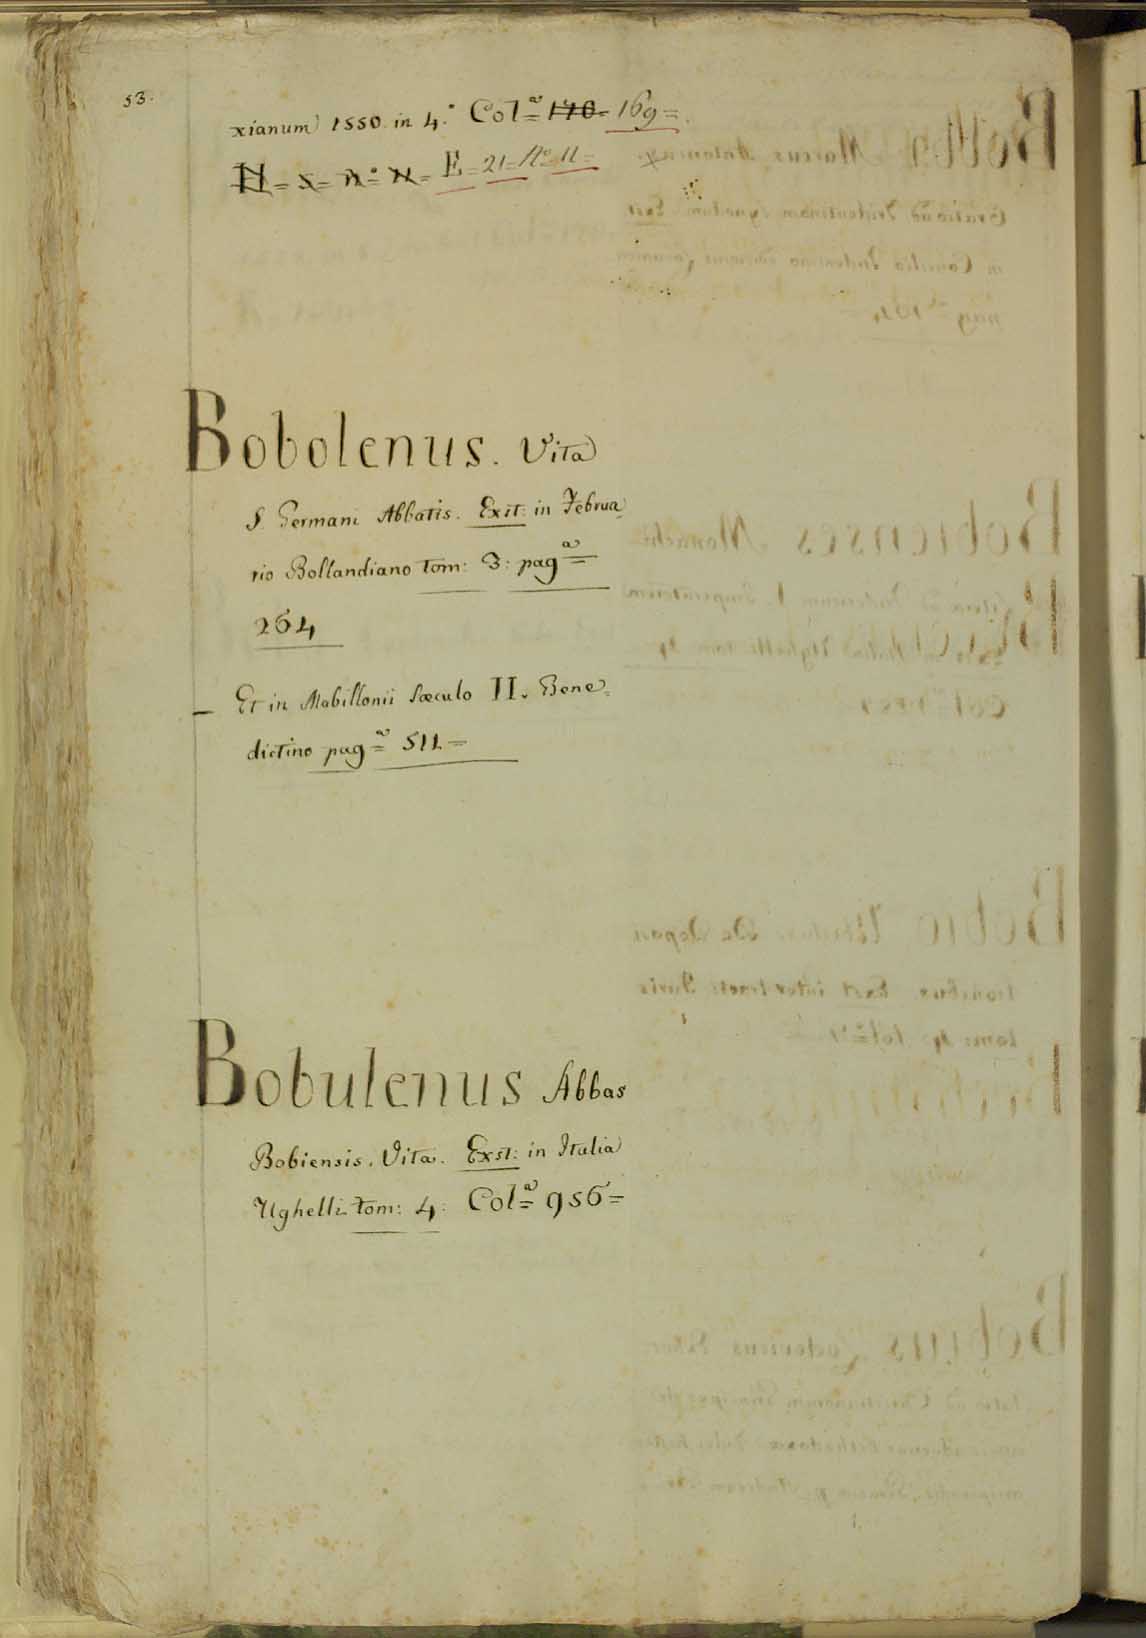 53.
xianum 1550. in 4.° Col.ª 170 = 169 =
N = S = N.° N = E = 21 = N.° 11 =
Bobolenus. Vita
S. Germani Abbatis. Exst: in Februa
rio Bollandiano tom: 3: pag.ª
264
Et in Mabillonii Sæculo II. Bene=
dictino pag.ª 511 =
Bobulenus Abbas
Bobiensis. Vita. Exst: in Italia
Ughelli tom: 4: Col.ª 956 =